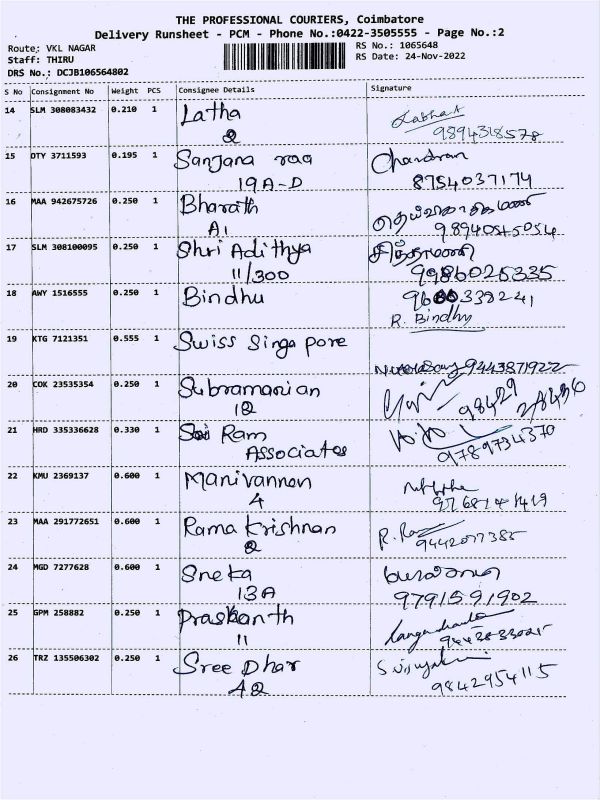 THE PROFESSIONAL COURIERS, Coimbatore
Delivery Runsheet - PCM - Phone No.:0422-3505555 - Page No.:2
Route: VKL NAGAR RS No.: 1065648
Staff: THIRU RS Date: 24-Nov-2022
DRS No.: DCJB106564802
S No Consignment No Weight PCS Consignee Details Signature
14 SLM 308083432 0.210 1 Latha
2 9894318578
15 OTY 3711593 0.195 1 Sanjana rao Chandran
19A-D 8754037174
16 MAA 942675726 0.250 1 Bharath
A1 98940545054
17 SLM 308100095 0.250 1 Shri Adithya
11/300 9986026335
18 AWY 1516555 0.250 1 Bindhu
R. Bindhu
19 KTG 7121351 0.555 1 Swiss Singapore
9443871922
20 COK 23535354 0.250 1 Subramanian
12 98429
21 HRD 335336628 0.330 1 Sri Ram
Associates 9789734370
22 KMU 2369137 0.600 1 Manivannan
4
23 MAA 291772651 0.600 1 Rama Krishnan
2 9442077385
24 MGD 7277628 0.600 1 Sneka
13A 9791591902
25 GPM 258882 0.250 1 Prashanth
11
26 TRZ 135506302 0.250 1 Sree Dhar
42 9842954115